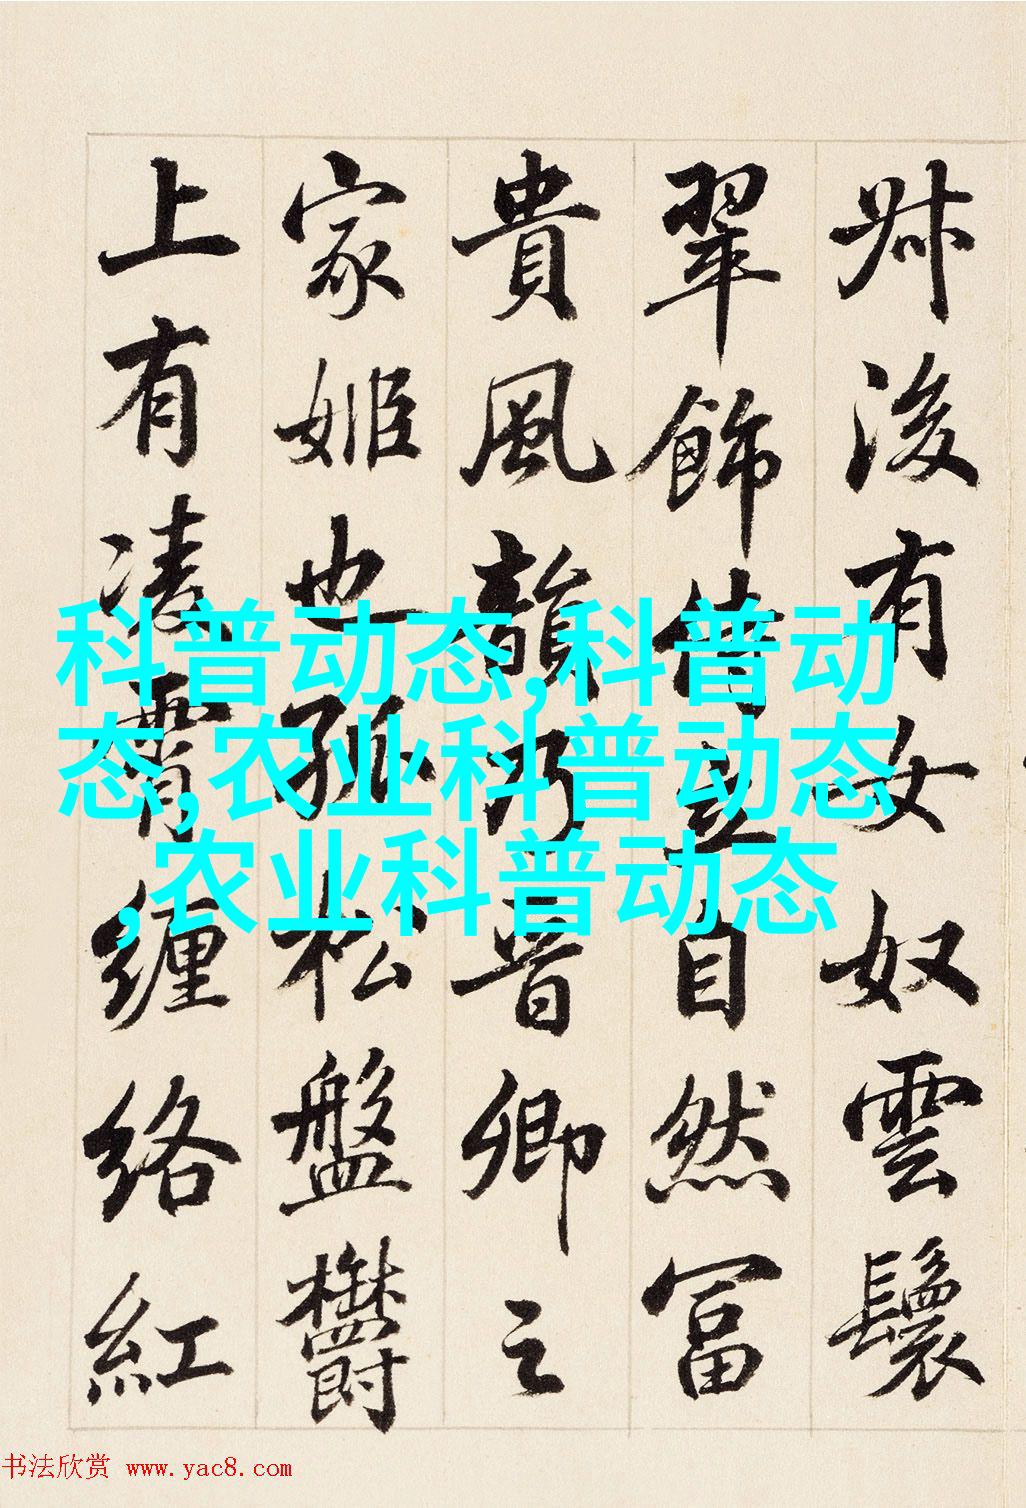 叔後有女奴雲鬟
翠飾侍立自然富
貴風韻乃晉卿之
家姬也孤松盤鬱
上有凌霄纏絡紅
科普动态,科普动
态,农业科普动态
,农业科普动态
书法欣赏 www.yac8.com